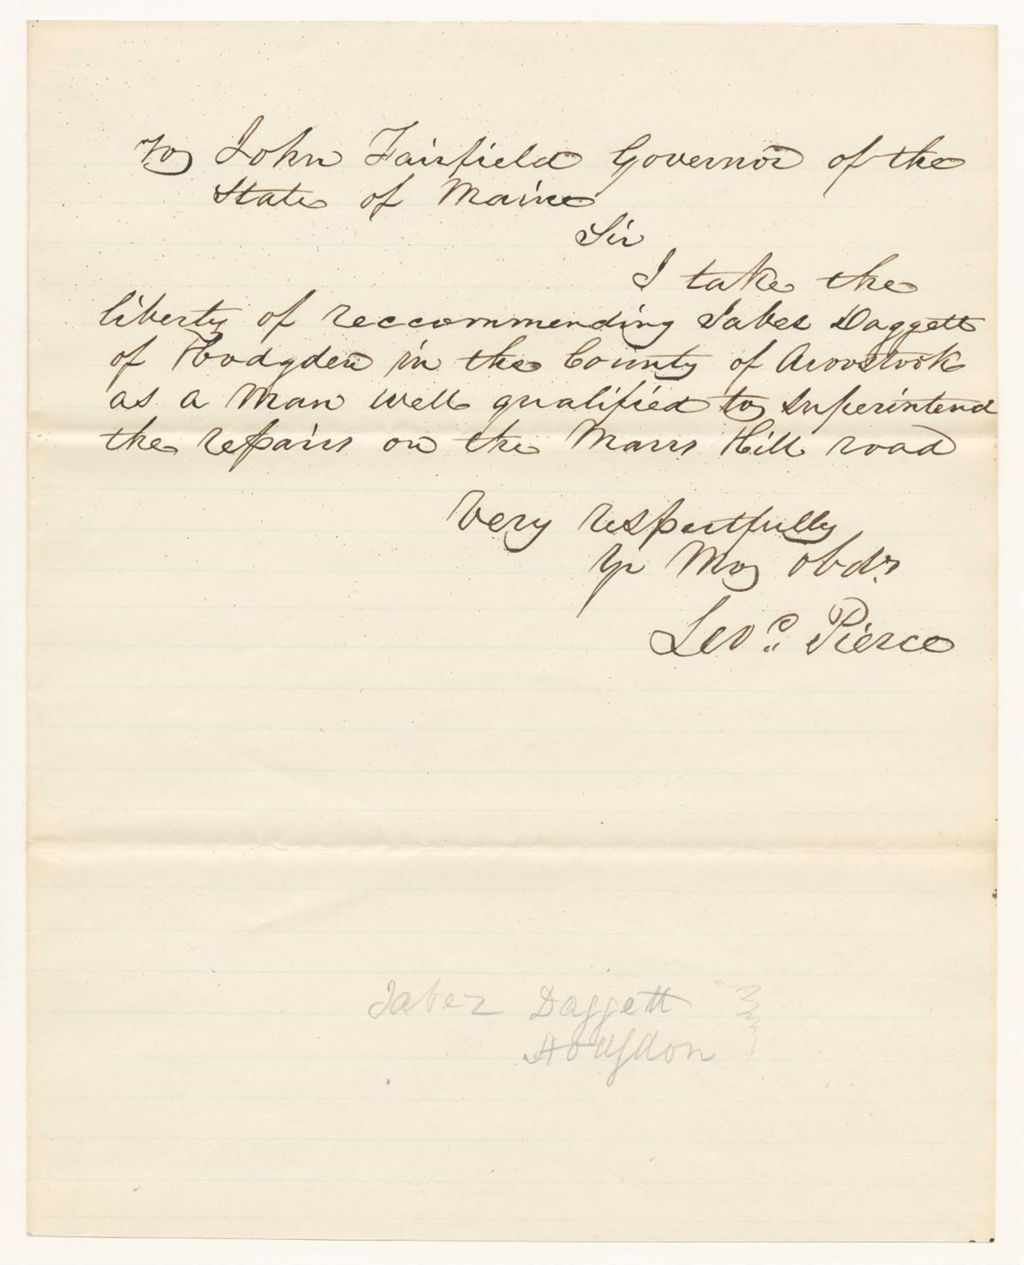 To John Fairfield Governor of the
State of Maine
Sir
I take the
liberty of reccommending Jabes Daggett
of Hodgden in the County of Aroostook
as a Man well qualified to Superintend
the repairs on the Mars Hill road
Very respectfully
Yr Mo obdt
Levo. Pierce
Jabez Daggett
Hodgdon